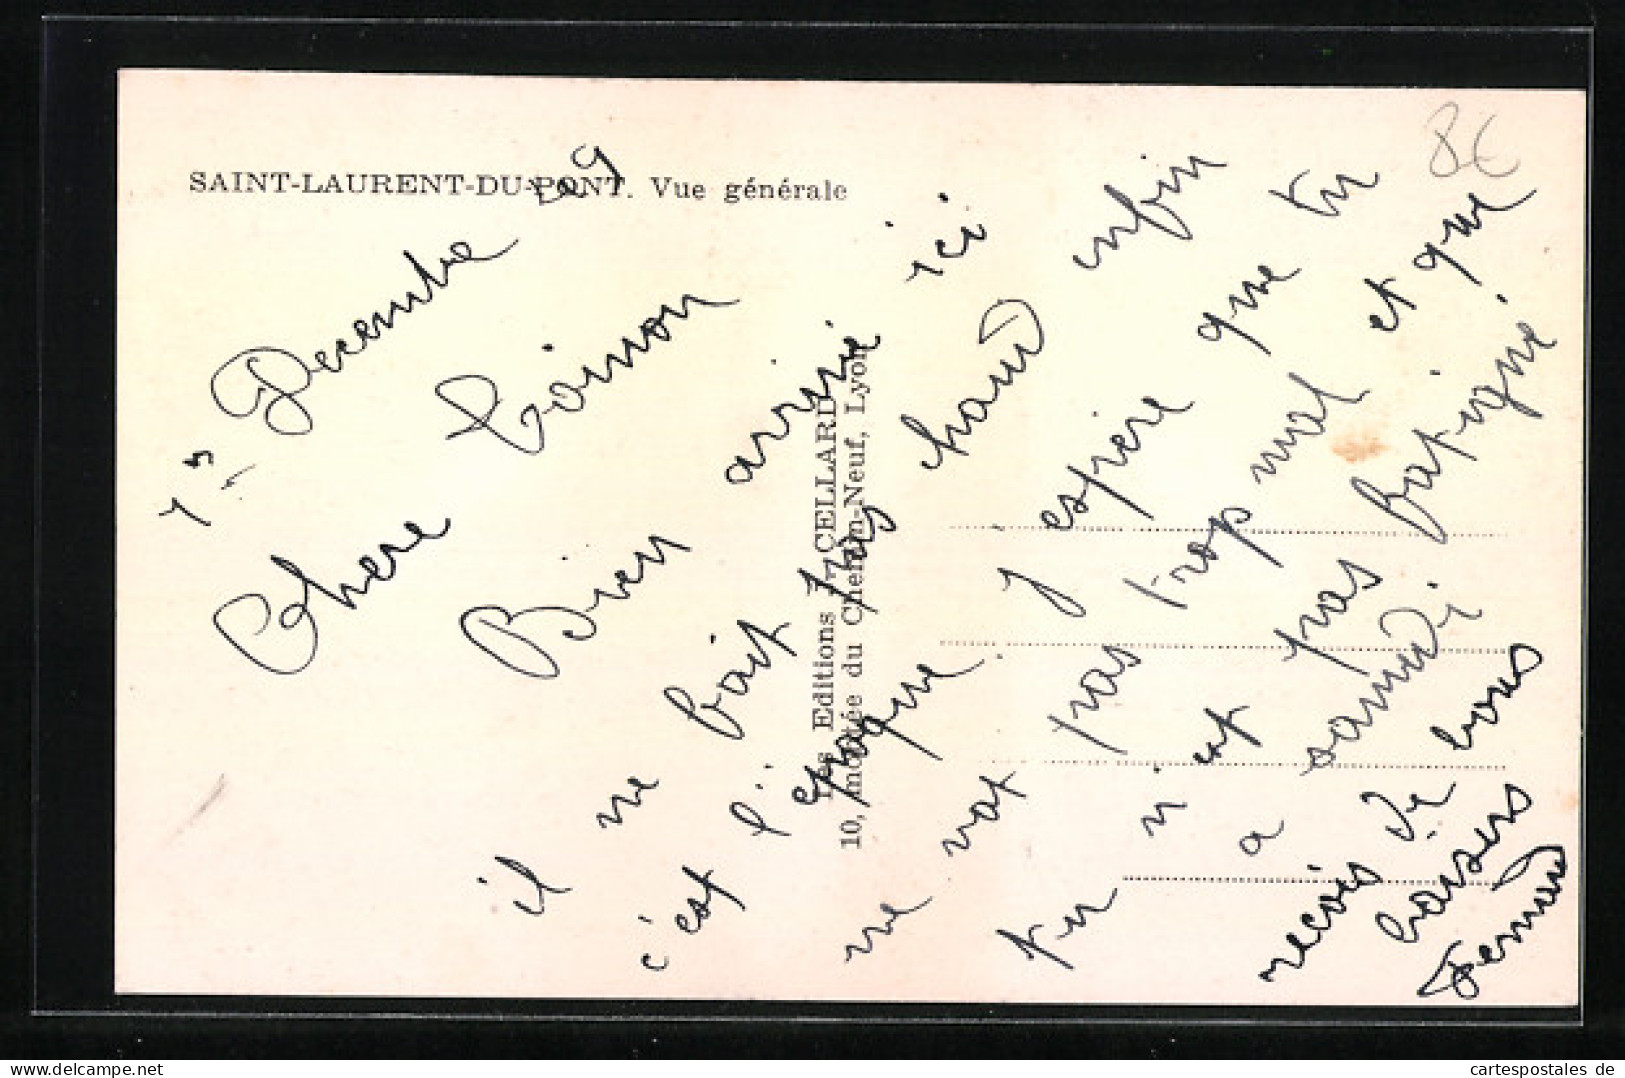 SAINT-LAURENT-DU-PONT. Vue générale
8€
Decembre
Chere Toinon
Bien arrivé ici
il ne fait pas chaud enfin
c'est l'époque. j espère que tu
ne vat pas trop mal et que
tu n'est pas fatigné
a samedi
recois de bons
baisers
Fernand
Les Editions J. CELLARD
10, montée du Chemin-Neuf, Lyon
cartespostales de
www.delcampe.net